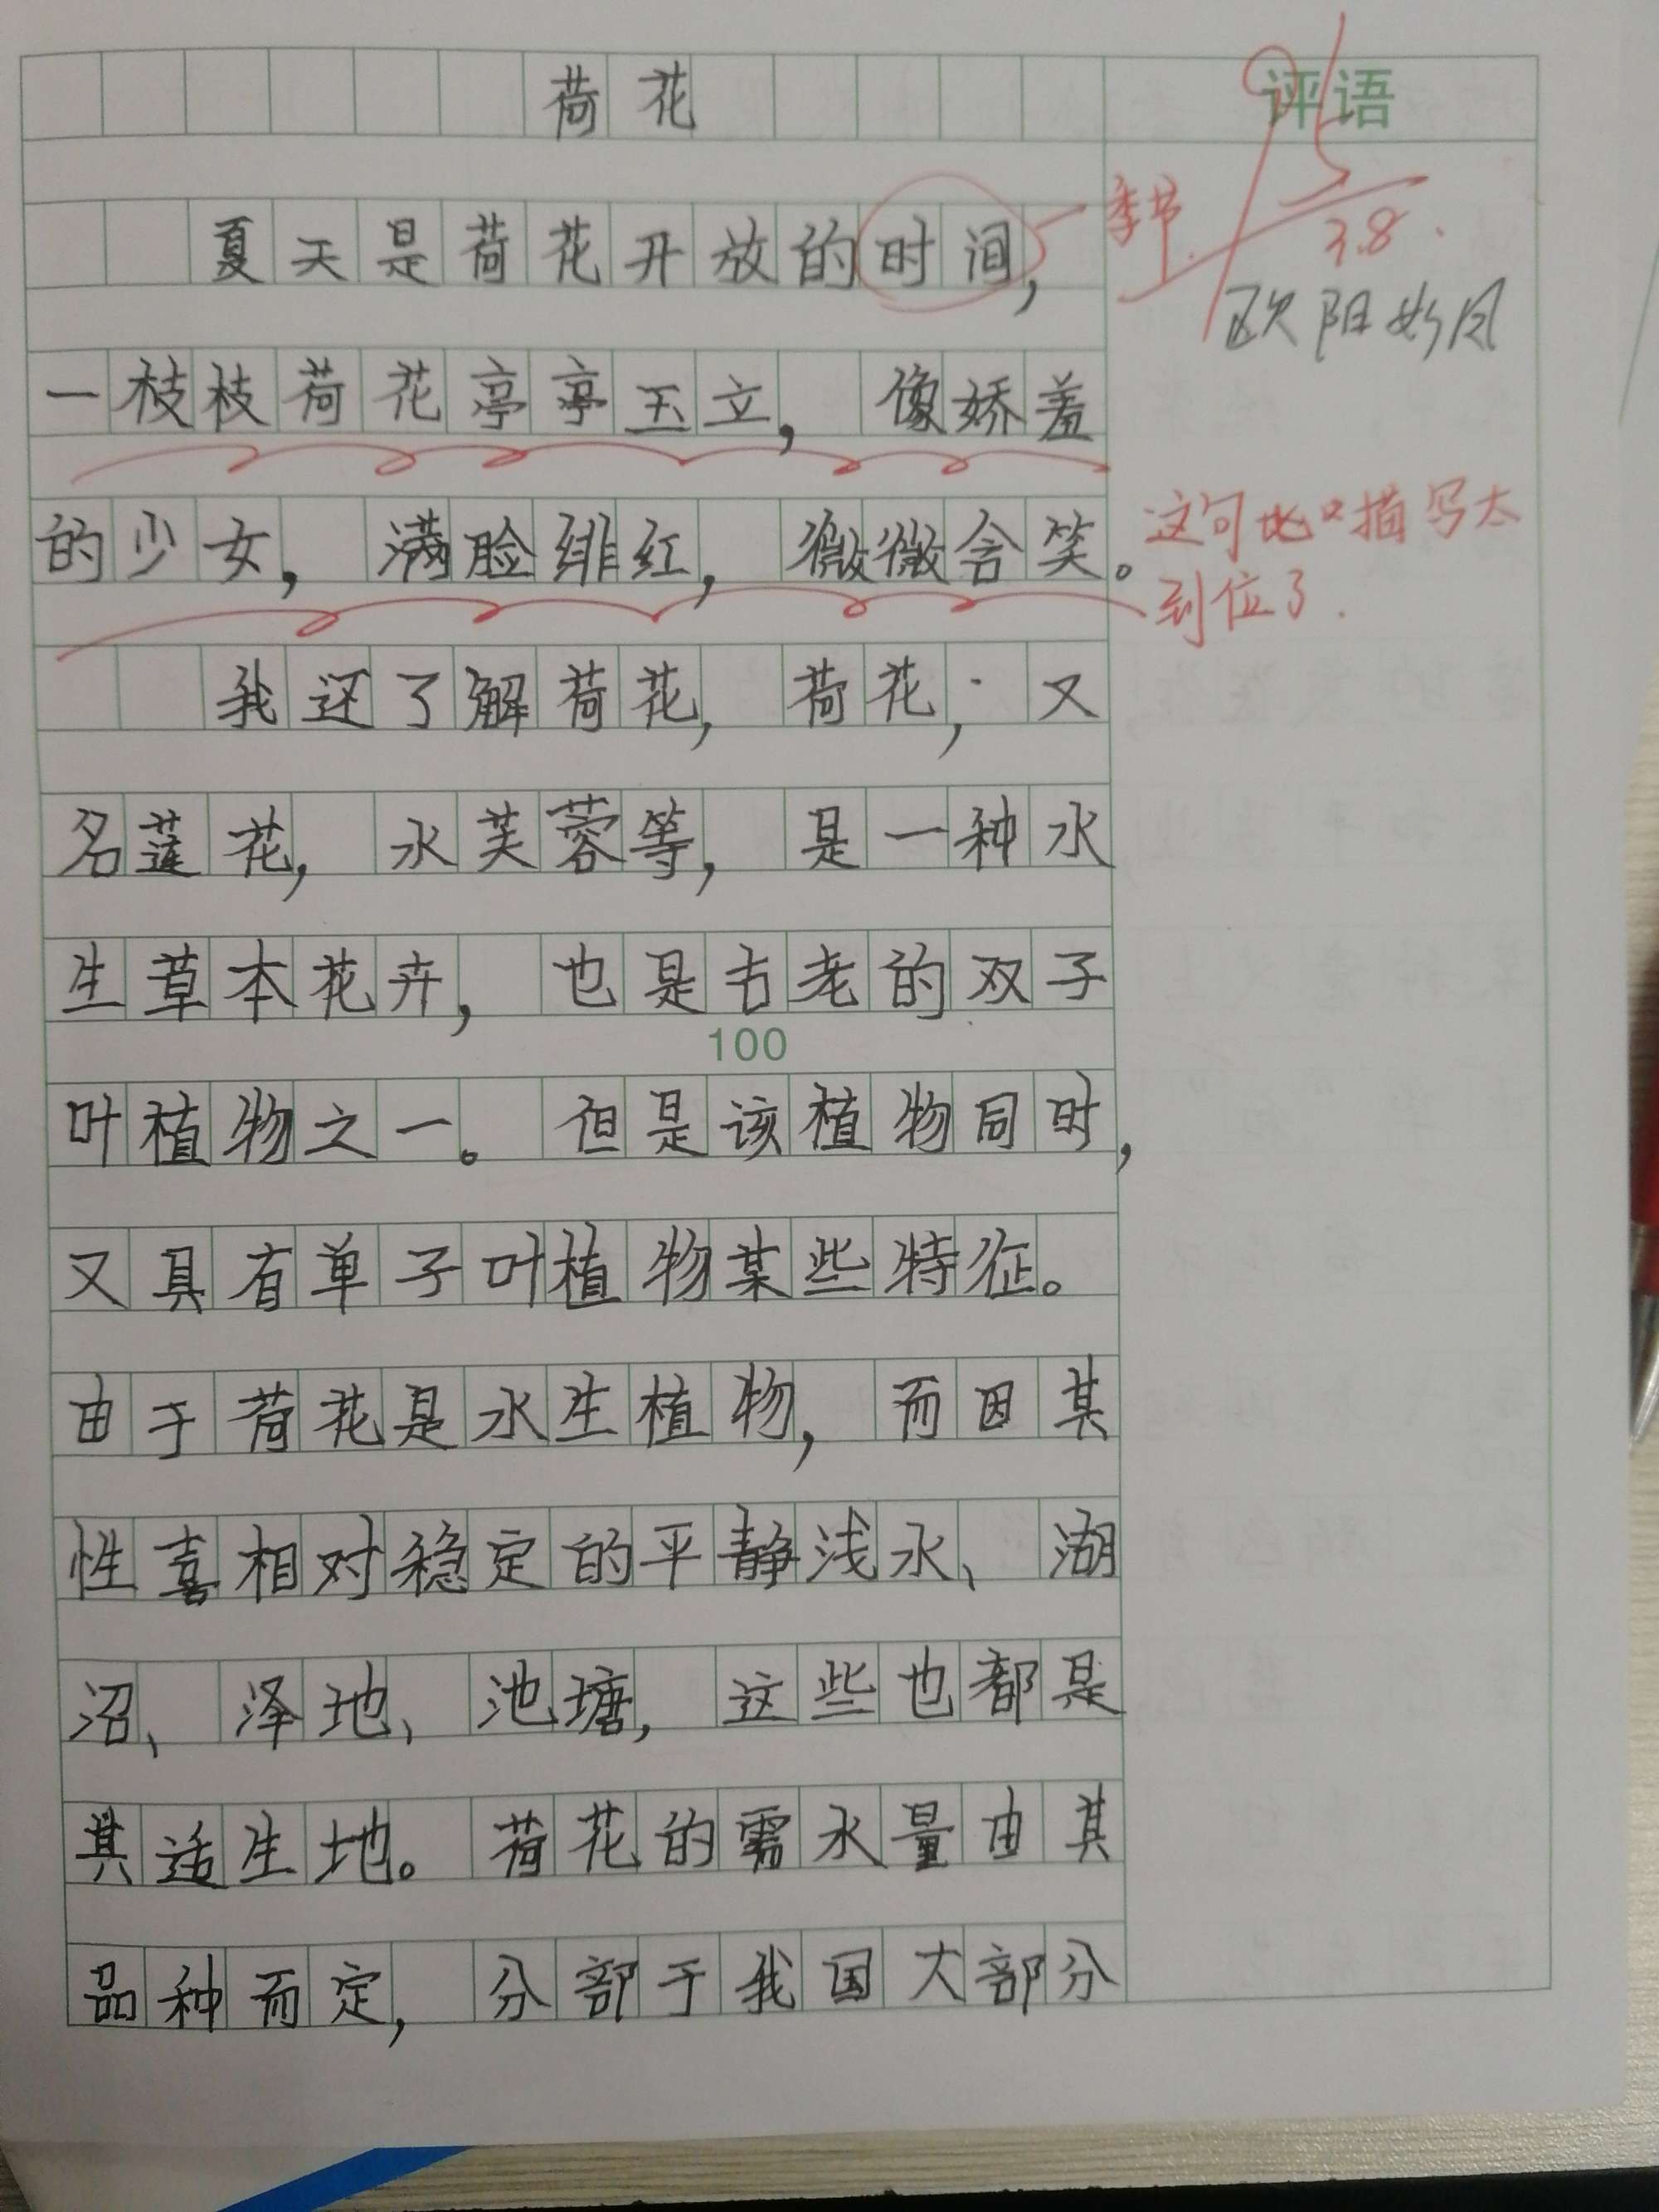 荷花
评语
夏天是荷花开放的时间,
季节
95
3.8.
欧阳妙凤
一枝枝荷花亭亭玉立,像娇羞
的少女,满脸绯红,微微含笑。
这句比喻描写太
到位了.
我还了解荷花,荷花,又
名莲花,水芙蓉等,是一种水
生草本花卉,也是古老的双子
100
叶植物之一。但是该植物同时,
又具有单子叶植物某些特征。
由于荷花是水生植物,而因其
性喜相对稳定的平静浅水、湖
沼、泽地、池塘,这些也都是
其适生地。荷花的需水量由其
品种而定,分部于我国大部分